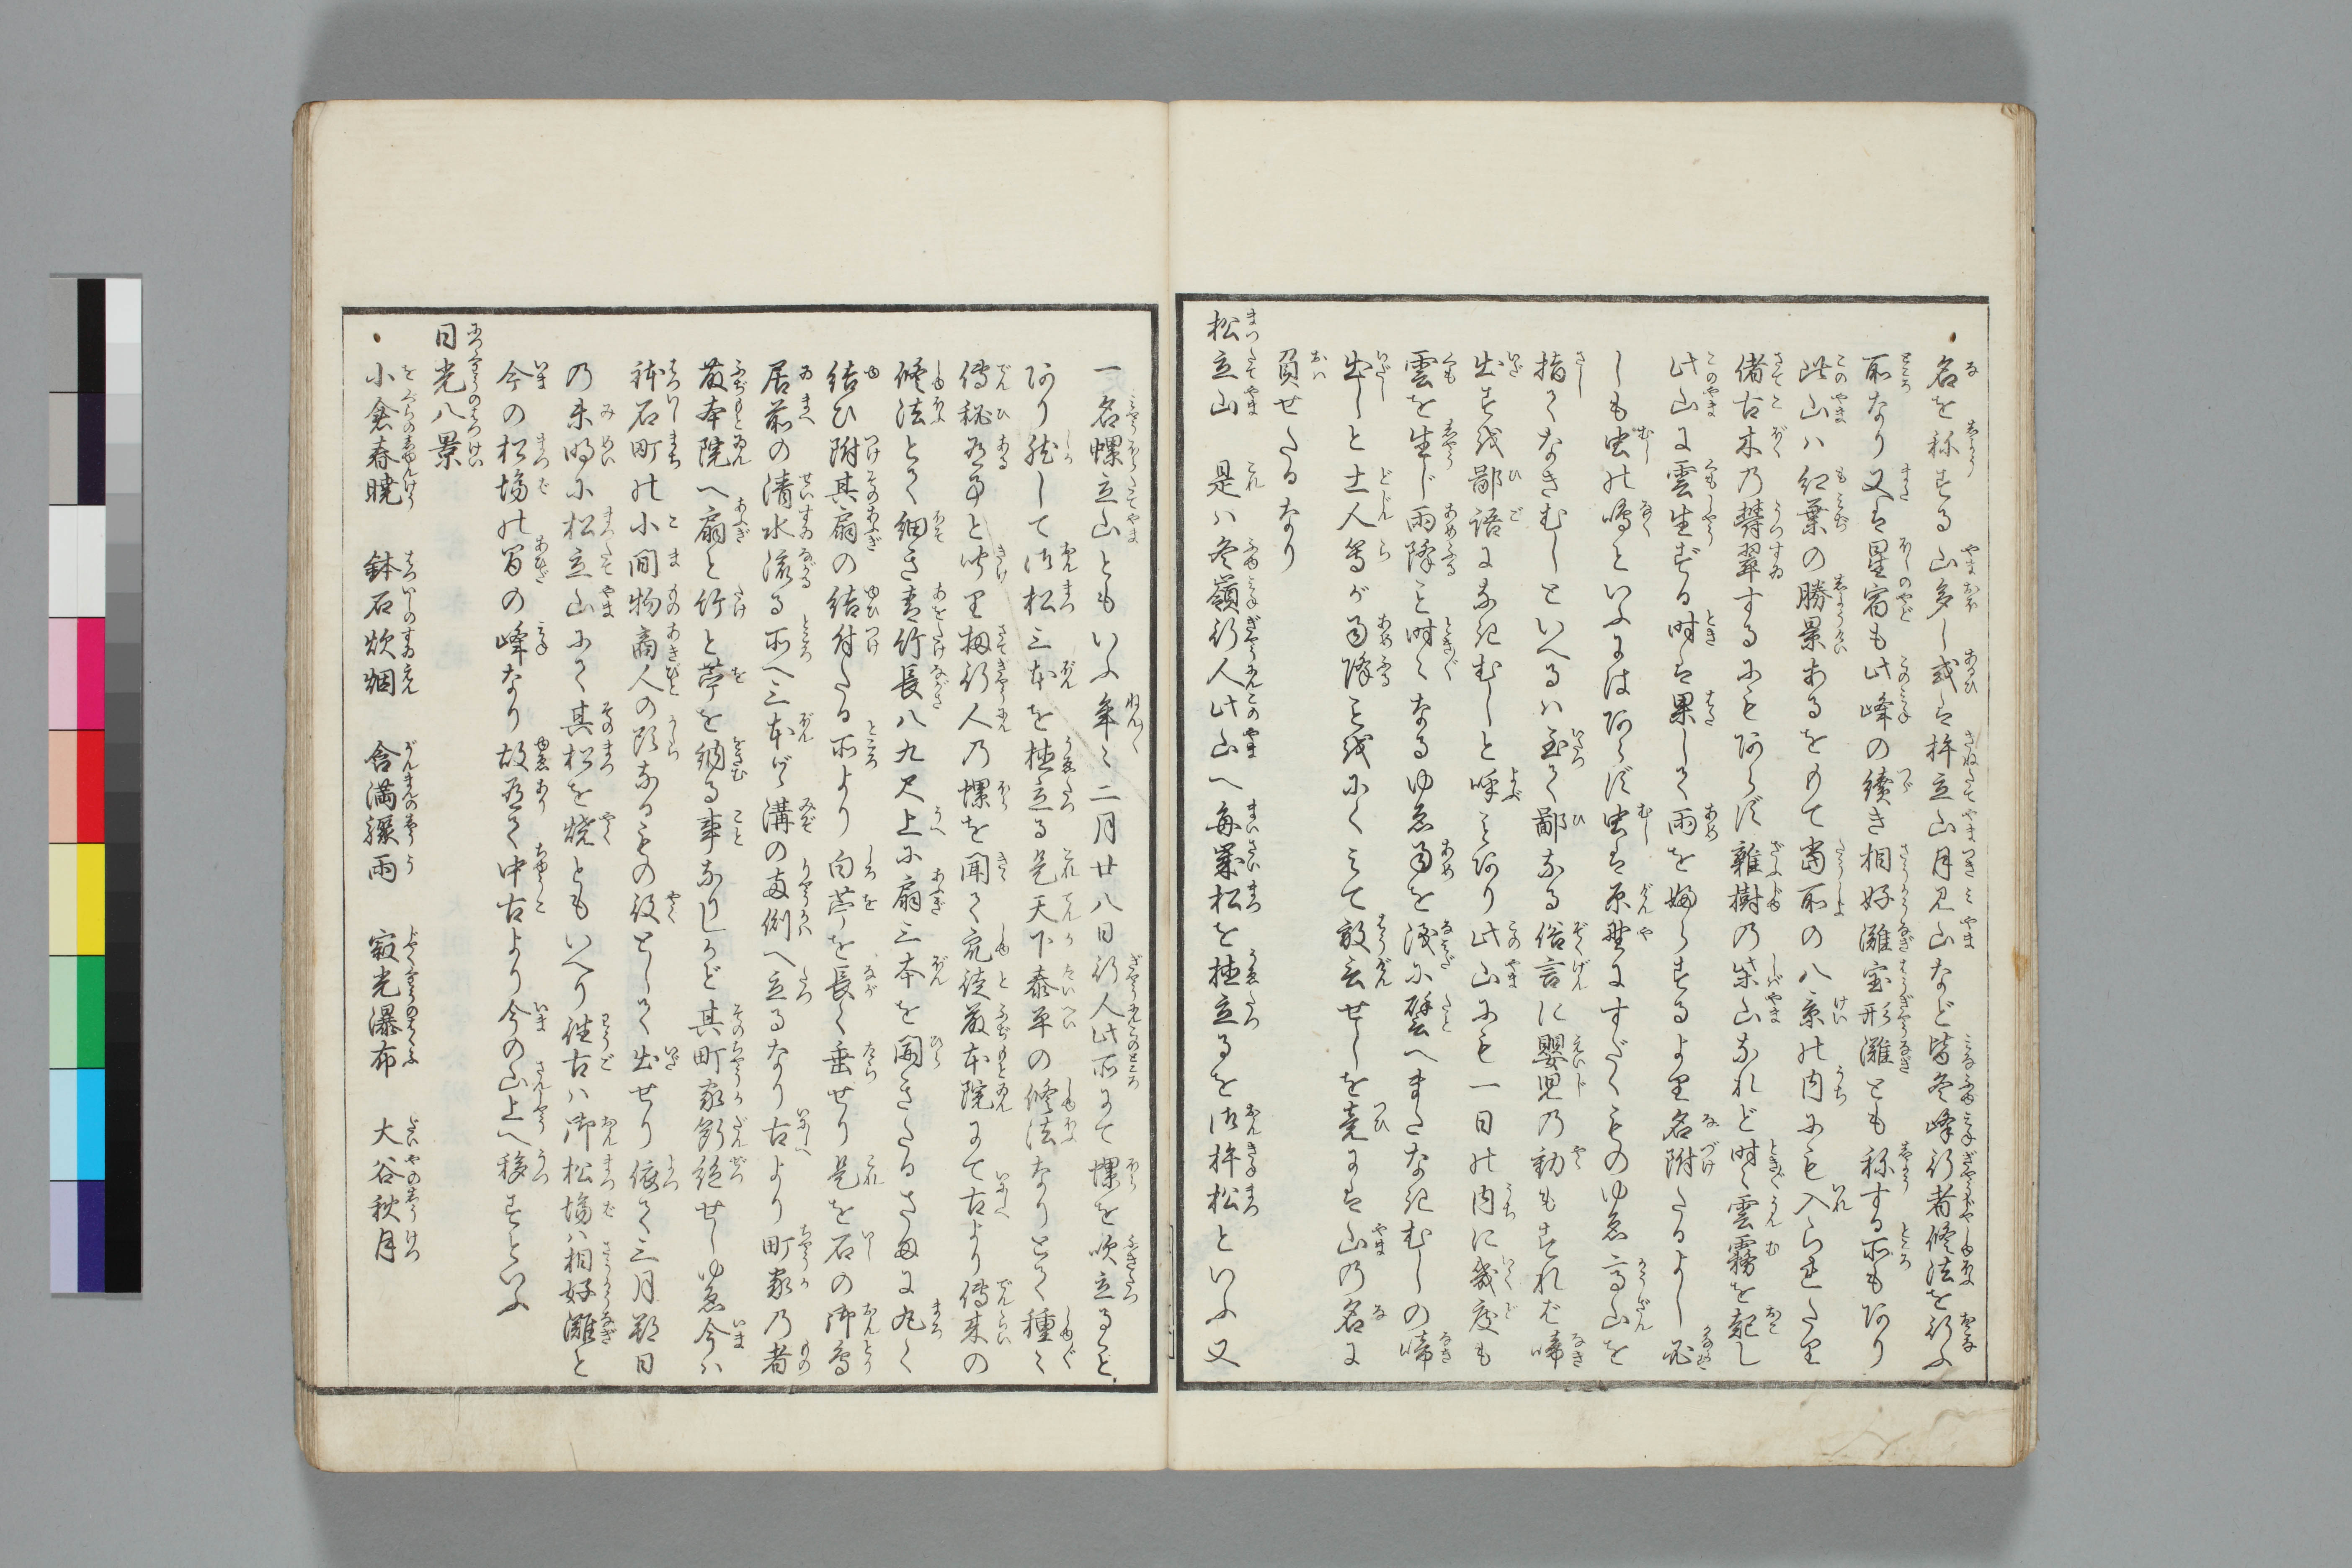 名を称する山多し或は杵立山月見山など皆冬峰行者修法を行ふ
所なり又は星宿も此峰の続き相好灘宝形灘とも称する所もあり
此山ハ紅葉の勝景あるをもて当所の八景の内にも入られたり
偖古木の欝翠するにもあらず雑樹の柴山なれど時〻雲霧を起し
此山に雲生ずる時は果して雨を婦らするより名附たるよし必
しも虫の鳴といふにはあらず虫は原野にすだくものゆゑ高山を
指てなきむしといへるハ至て鄙なる俗言に嬰児の動もすれば啼
出すを鄙語になきむしと呼ことあり此山にも一日の内に幾度も
雲を生じ雨降こと時〻なるゆゑ雨を涙に譬へまたなきむしの啼
出しと土人等が雨降ことをにくみて放言せしを竟には山の名に
負せたるなり
松立山　是ハ冬嶺行人此山へ毎歳松を植立るを御杵松といふ又
一名螺立山ともいふ年〻二月廿八日行人此所にて螺を吹立ること
あり然して御松三本を植立る是天下泰平の修法なりとて種〻
傳秘有事と聞り扨行人の螺を聞て宛徒藤本院にて古より傳来の
修法とて細き青竹長八九尺上に扇三本を開きたるさまに丸く
結ひ附其扇の結付たる所より白苧を長く垂せり是を石の御鳥
居前の清水流る所へ三本づゝ溝の両側へ立るなり古より町家の者
藤本院へ扇と竹と苧を納る事なりしかど其町家断絶せしゆゑ今ハ
鉢石町の小間物商人の頭なるもの役として出せり依て三月朔日
の未明に松立山にて其松を焼ともいへり往古ハ御松場ハ相好灘と
今の松場の間の峰なり故有て中古より今の山上へ移すといふ
日光八景
小倉春暁　鉢石炊烟　含満驟雨　寂光瀑布　大谷秋月